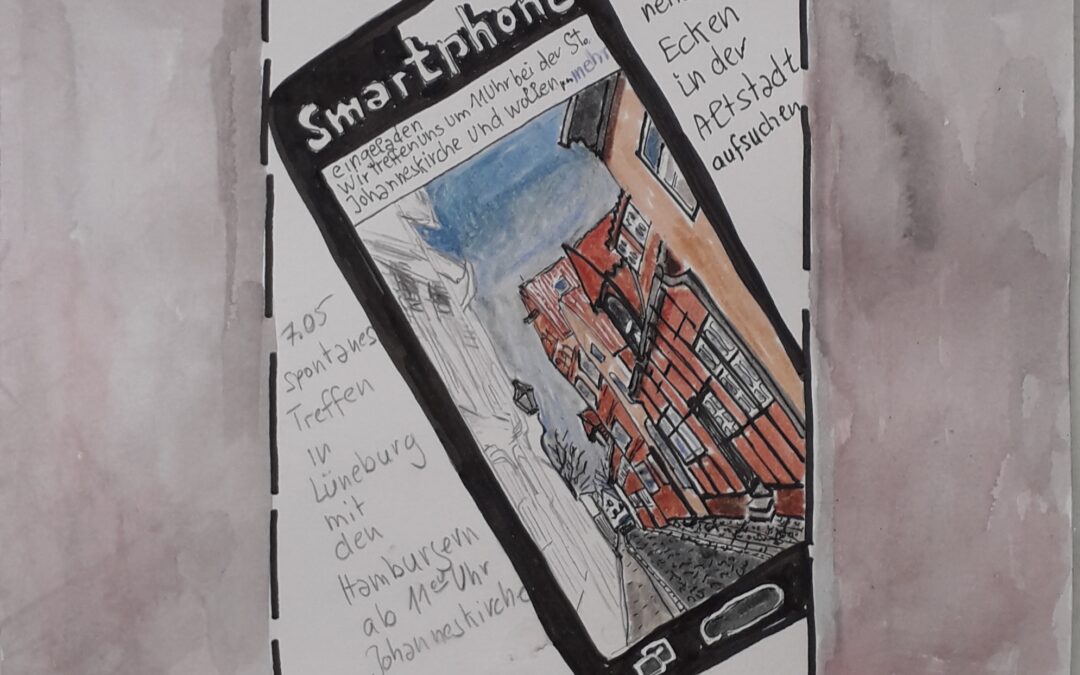 Smartphone
eingeladen
Wir treffen uns um 11 Uhr bei der St.
Johanneskirche und wollen ... mehr
Ecken
in der
Altstadt
aufsuchen
7.05
spontanes
Treffen
in
Lüneburg
mit
den
Hamburgern
ab 11 Uhr
Johanneskirche